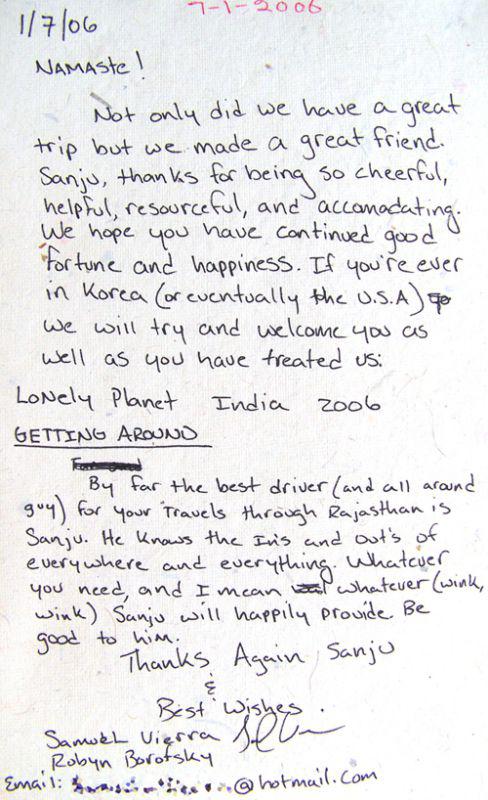 7-1-2006
1/7/06
NAMASTE!
Not only did we have a great
trip but we made a great friend.
Sanju, thanks for being so cheerful,
helpful, resourceful, and accomadating.
We hope you have continued good
fortune and happiness. If you're ever
in Korea (or eventually the U.S.A)
we will try and welcome you as
well as you have treated us.
Lonely Planet India 2006
GETTING AROUND
By far the best driver (and all around
guy) for your travels through Rajasthan is
Sanju. He knows the In's and out's of
everywhere and everything. Whatever
you need, and I mean whatever (wink,
wink) Sanju will happily provide. Be
good to him.
Thanks Again Sanju
&
Best Wishes.
Samuel Vierra
Robyn Borofsky
Email: @hotmail.com